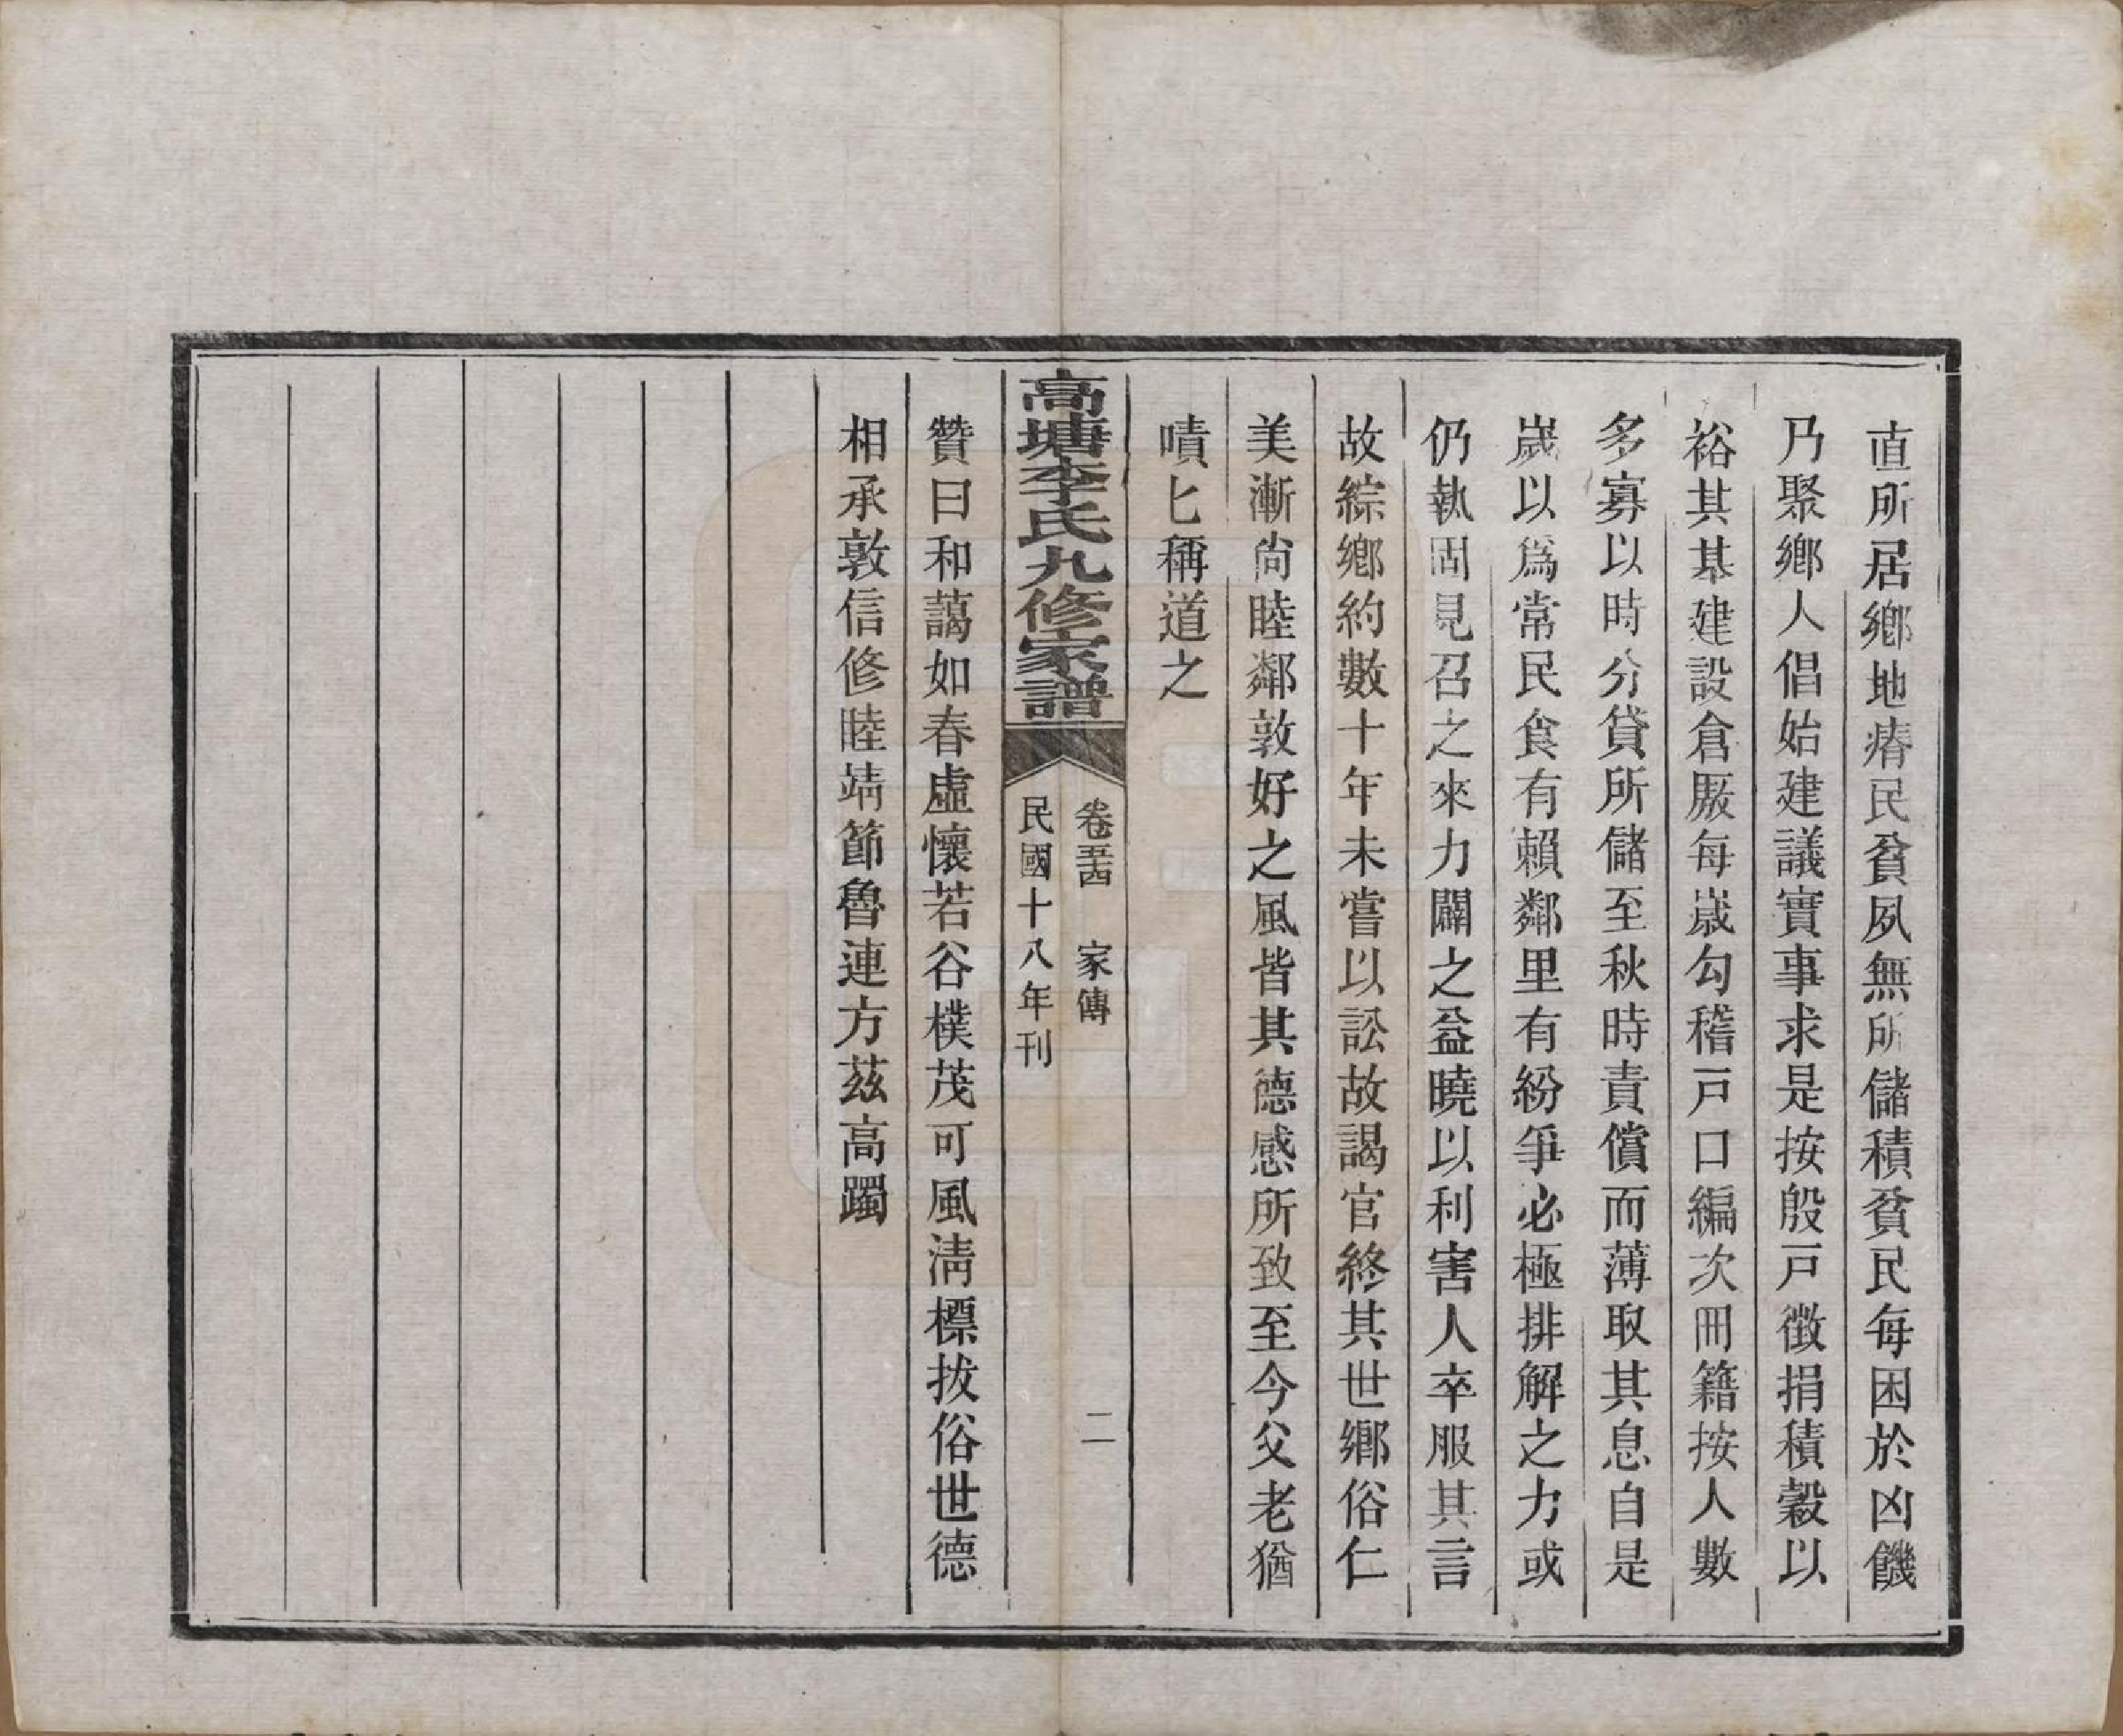 直所居鄉地瘠民貧夙無所儲積貧民每困於凶饑
乃聚鄉人倡始建議實事求是按殷戶徵捐積穀以
裕其基建設倉厫每歲勾稽戶口編次冊籍按人數
多寡以時分貸所儲至秋時責償而薄取其息自是
歲以爲常民食有賴鄰里有紛爭必極排解之力或
仍執固見召之來力闢之益曉以利害人卒服其言
故綜鄉約數十年未嘗以訟故謁官終其世鄉俗仁
美漸尙睦鄰敦好之風皆其德感所致至今父老猶
嘖匕稱道之
高塘李氏九修家譜
卷五四 家傳 二
民國十八年刊
贊曰和藹如春虛懷若谷樸茂可風淸標拔俗世德
相承敦信修睦靖節魯連方茲高躅